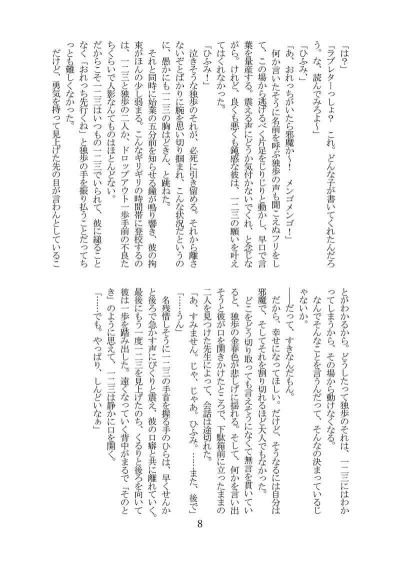 「は？」
「ラブレターっしょ？　これ。どんな子が書いてくれたんだろ
う。な、読んでみろよ～」
「ひふみ」
「あ、おれっちがいたら邪魔か～！　メンゴメンゴ！」
　何か言いたそうに名前を呼ぶ独歩の声も聞こえぬフリをし
て、この場から逃げるべく片足をじりじりと動かし、早口で言
葉を量産する。震える声にどうか気付かないでくれ、と念じな
がら。けれど、良くも悪くも鈍感な彼は、一二三の願いを叶え
てはくれなかった。
「ひふみ！」
　泣きそうな独歩のそれが、必死に引き留める。それから離さ
ないぞとばかりに腕を思い切り掴まれ、こんな状況だというの
に、愚かにも一二三の胸はどきん、と跳ねた。
　それと同時に始業の五分前を知らせる鐘が鳴り響き、彼の拘
束がほんの少し弱まる。こんなギリギリの時間帯に登校するの
は、一二三と独歩の二人か、ドロップアウト一歩手前の不良た
ちくらいで人影なんてものはほとんどない。
だからこそ一二三はいつもの一二三でいられて、彼に縋ること
なく「おれっち先行くね」と独歩の手を振りほどうことだってち
っとも難しくなかった。
　だけど、勇気を持って見上げた先の目が言わんとしているこ
とがわかるから。どうしたって独歩のそれは、一二三にはわか
ってしまうから、その場から動けなくなる。
　なんでそんなことを言うんだって、そんなの決まっているじ
ゃないか。
　――だって、すきなんだもん。
　だから、幸せになってほしい。だけど、そうなるには自分は
邪魔で、そしてそれを割り切れるほど大人でもなかった。
　どこをどう切り取っても言えそうになくて無言を貫いてい
ると、独歩の金春色が悲しげに揺れる。そして、何かを言い出
そうと彼が口を開きかけたところで、下駄箱前に立ったままの
二人を見つけた先生によって、会話は途切れた。
「あ、すみません。じゃ、じゃあ。ひふみ。……また、後で」
「……うん」
　名残惜しそうに一二三の手首を握る手のひらは、早くせんか
と後ろで急かす声にびくりと震え、彼の口癖と共に離れていく。
最後にもう一度一二三を見上げたのち、くるりと後ろを向いて
彼は一歩を踏み出した。遠くなっていく背中がまるで「そのと
き」のように思えて、一二三は静かに口を開く。
「……でも。やっぱり、しんどいなぁ」
8